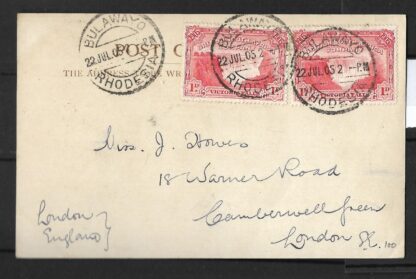 BULAWAYO
22 JUL 05 2 PM
RHODESIA
POST C
THE ADDRESS TO BE WR
BULAWAYO
22 JUL 05 2
RHODESIA
BULAWAYO
22 JUL 05 2 PM
RHODESIA
1D
VICTORIA
1D
1D
Miss. J. Howes
18 Warner Road
Camberwell Green
London S.E.
London
England
100